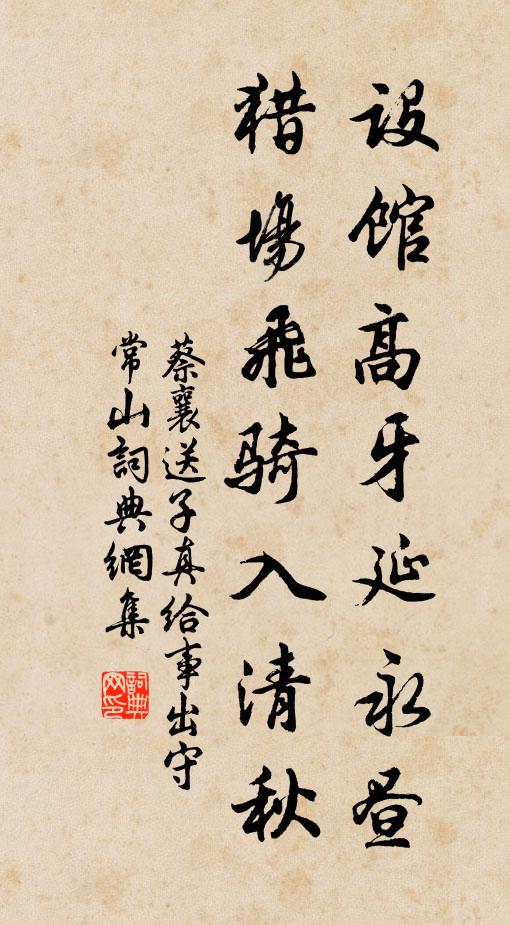 设馆高牙延永昼
猎场飞骑入清秋
蔡襄送子真给事出守
常山詞典網集
詞典网印